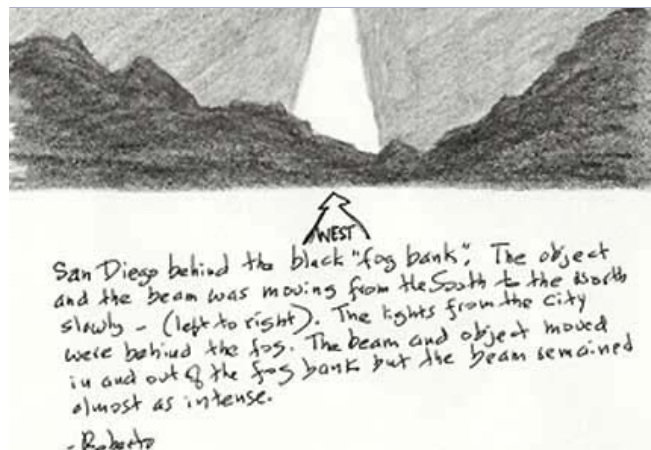 WEST
San Diego behind the black "fog bank". The object
and the beam was moving from the South to the North
slowly - (left to right). The lights from the city
were behind the fog. The beam and object moved
in and out of the fog bank but the beam remained
almost as intense.
- Roberto